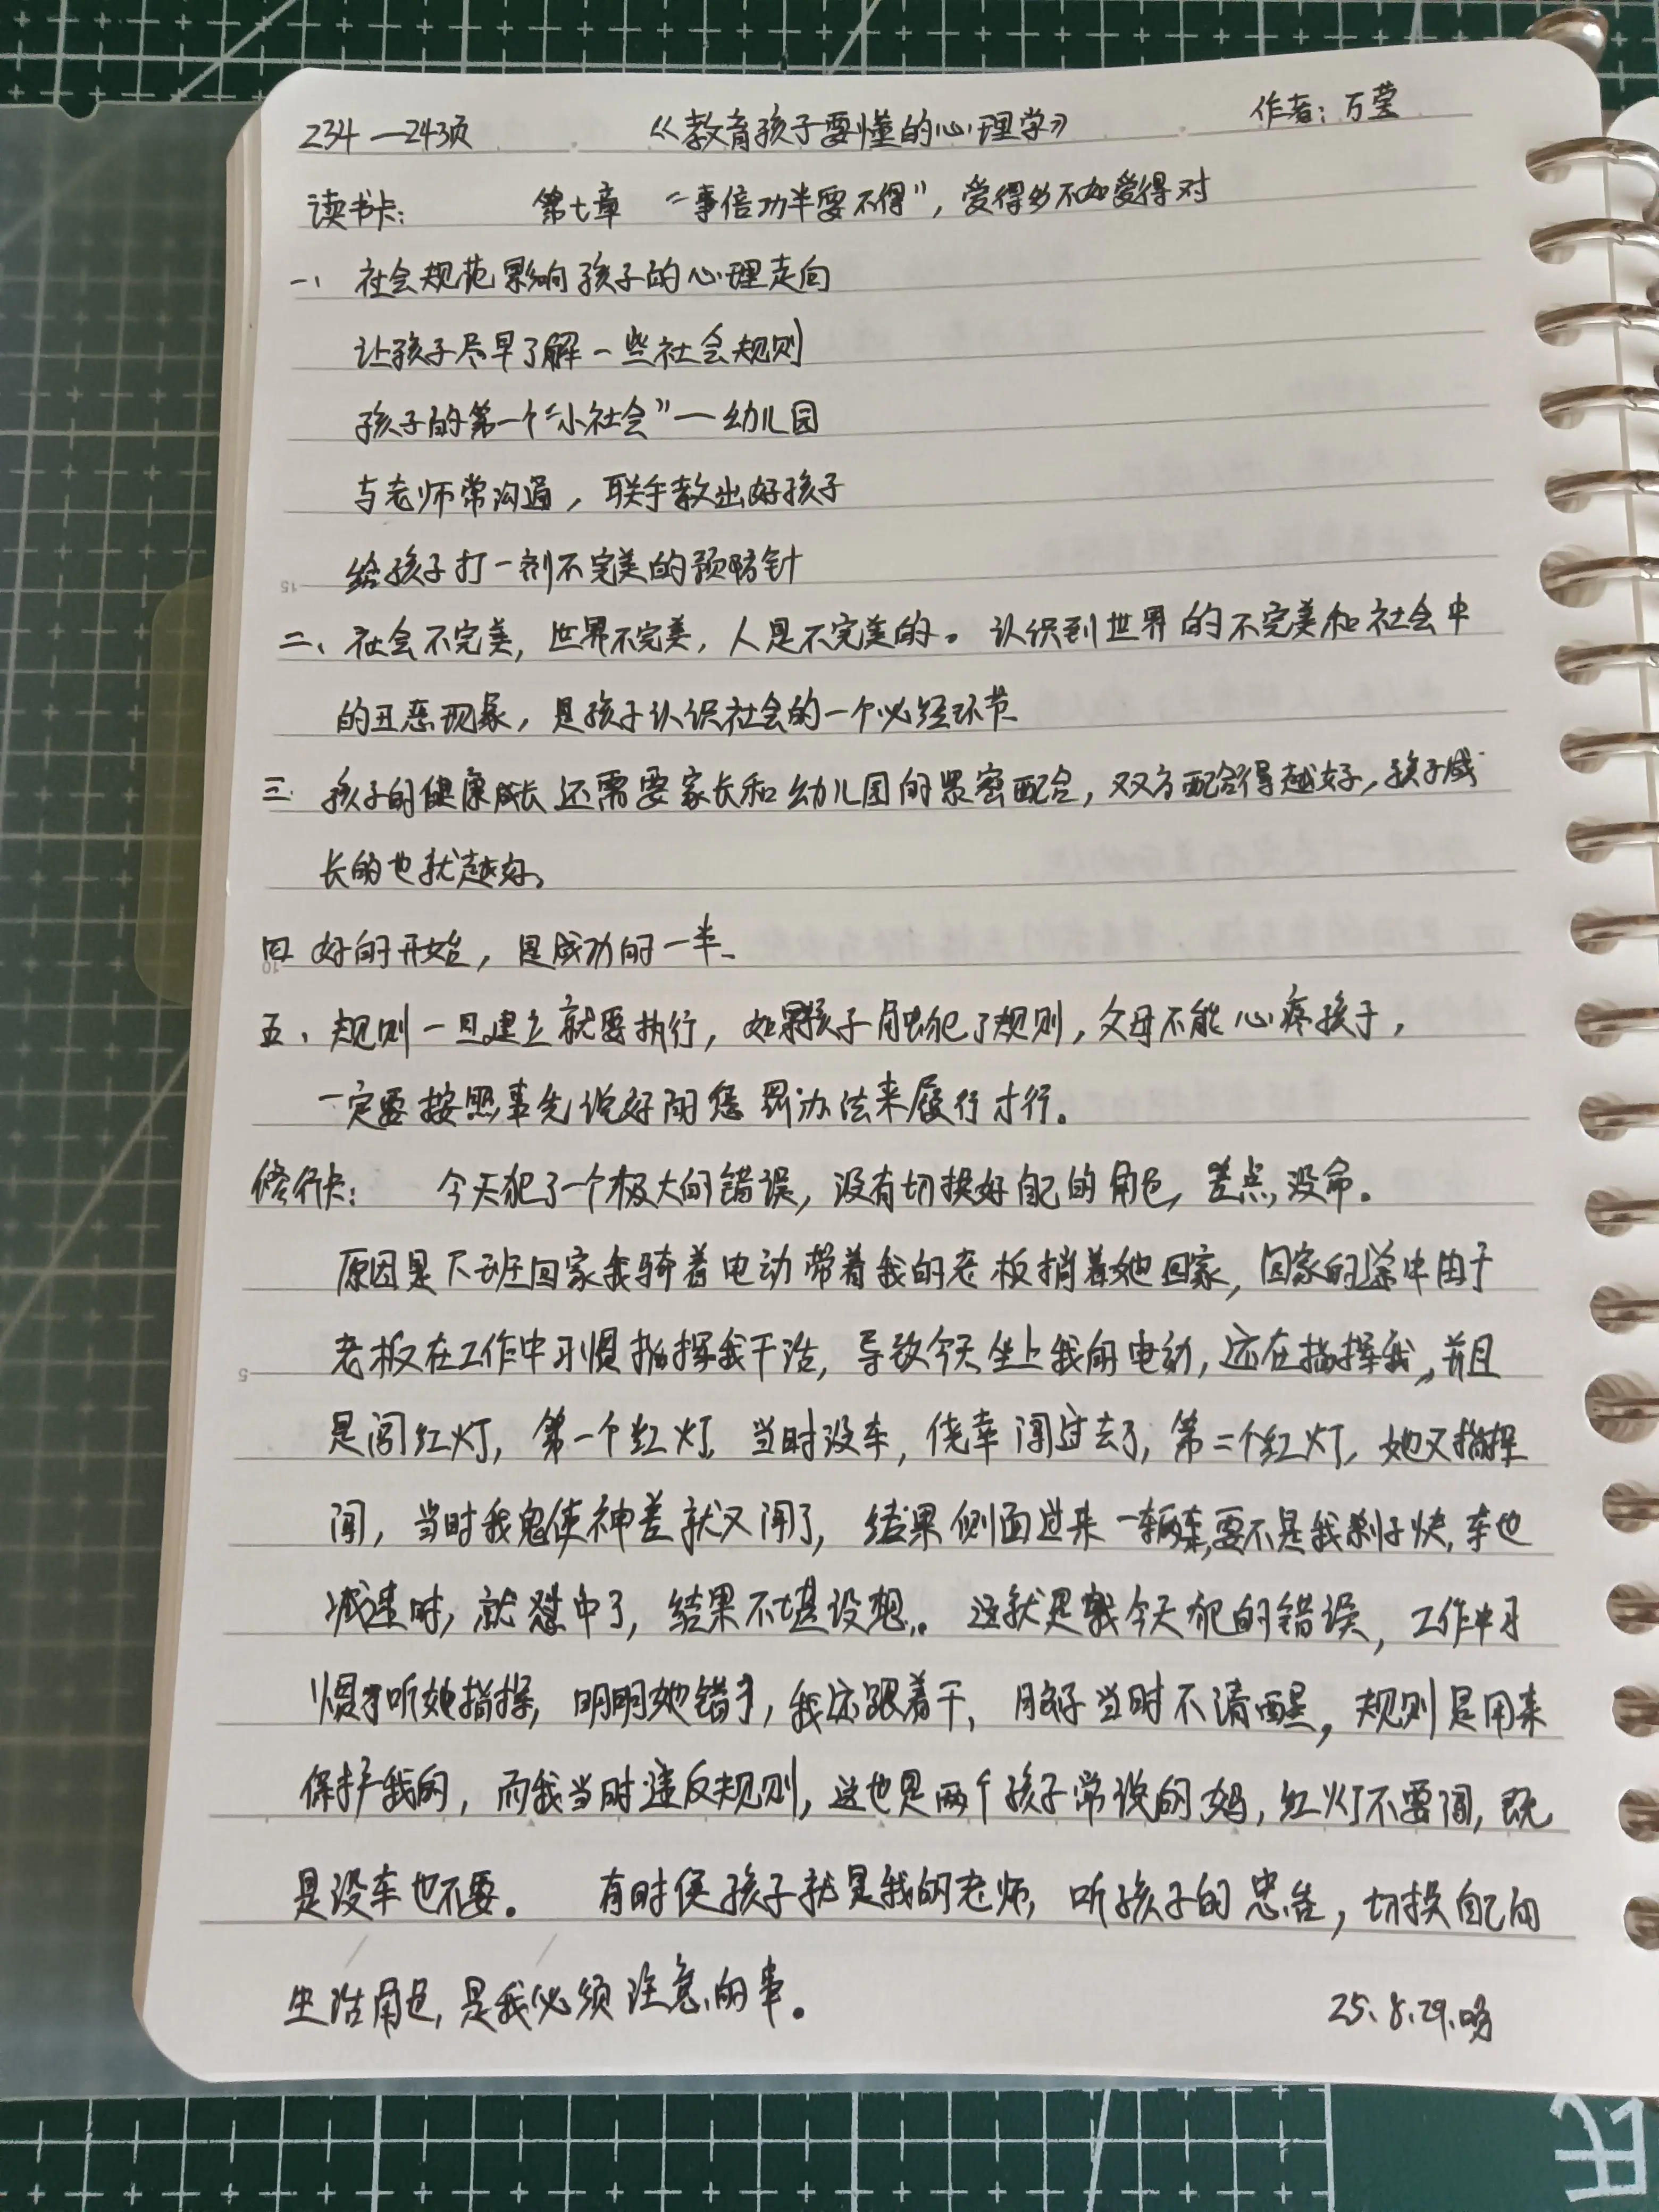 234—243页 《教育孩子要懂的心理学》 作者：万莹
读书卡： 第七章 “事倍功半要不得”，爱得多不如爱得对
一、社会规范影响孩子的心理走向
让孩子尽早了解一些社会规则
孩子的第一个“小社会”—幼儿园
与老师常沟通，联手教出好孩子
给孩子打一剂不完美的预防针
二、社会不完美，世界不完美，人是不完美的。认识到世界的不完美和社会中
的丑恶现象，是孩子认识社会的一个必经环节
三 孩子的健康成长还需要家长和幼儿园的紧密配合，双方配合得越好，孩子成
长的也就越好。
四 好的开始，是成功的一半
五、规则一旦建立就要执行，如果孩子触犯了规则，父母不能心疼孩子，
一定要按照事先说好的惩罚办法来履行才行。
修行卡： 今天犯了一个极大的错误，没有切换好自己的角色，差点没命。
原因是下班回家我骑着电动带着我的老板捎着她回家，回家的途中由于
老板在工作中习惯指挥我干活，导致今天坐上我的电动，还在指挥我，并且
是闯红灯，第一个红灯，当时没车，侥幸闯过去了，第二个红灯，她又指挥
闯，当时我鬼使神差就又闯了，结果侧面过来一辆车，要不是我刹子快，车也
减速时，就怼中了，结果不堪设想。这就是我今天犯的错误，工作中习
惯了听她指挥，明明她错了，我还跟着干，脑子当时不清醒，规则是用来
保护我的，而我当时违反规则，这也是两个孩子常说的妈，红灯不要闯，既
是没车也不要。 有时候孩子就是我的老师，听孩子的忠告，切换自己的
生活角色，是我必须注意的事。
25.8.29.晚
15
10
5